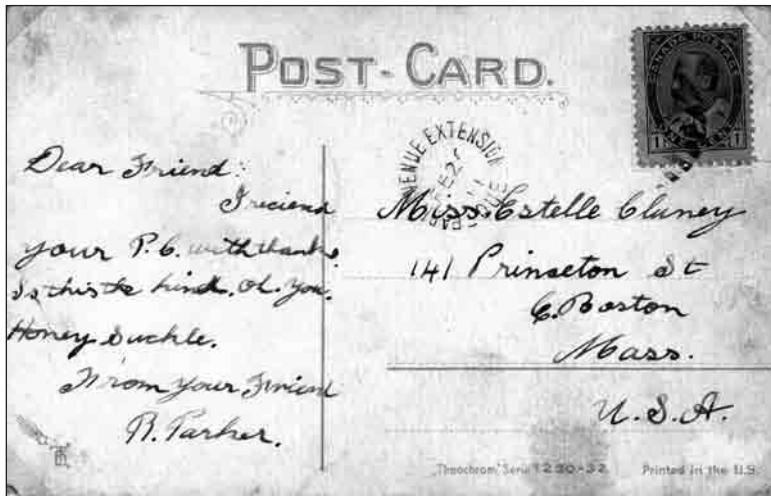 POST-CARD.
CANADA POSTAGE
1 1
AVENUE EXTENSION
Dear Friend:
I recieved
your P.C. with thanks.
Is this the kind. Oh. you.
Honey Suckle.
From your Friend
R. Parker.
Miss. Estelle Clancy
141 Princeton St
E. Boston
Mass.
U.S.A.
"Theochrom" Serie 1230-32 Printed in the U.S.